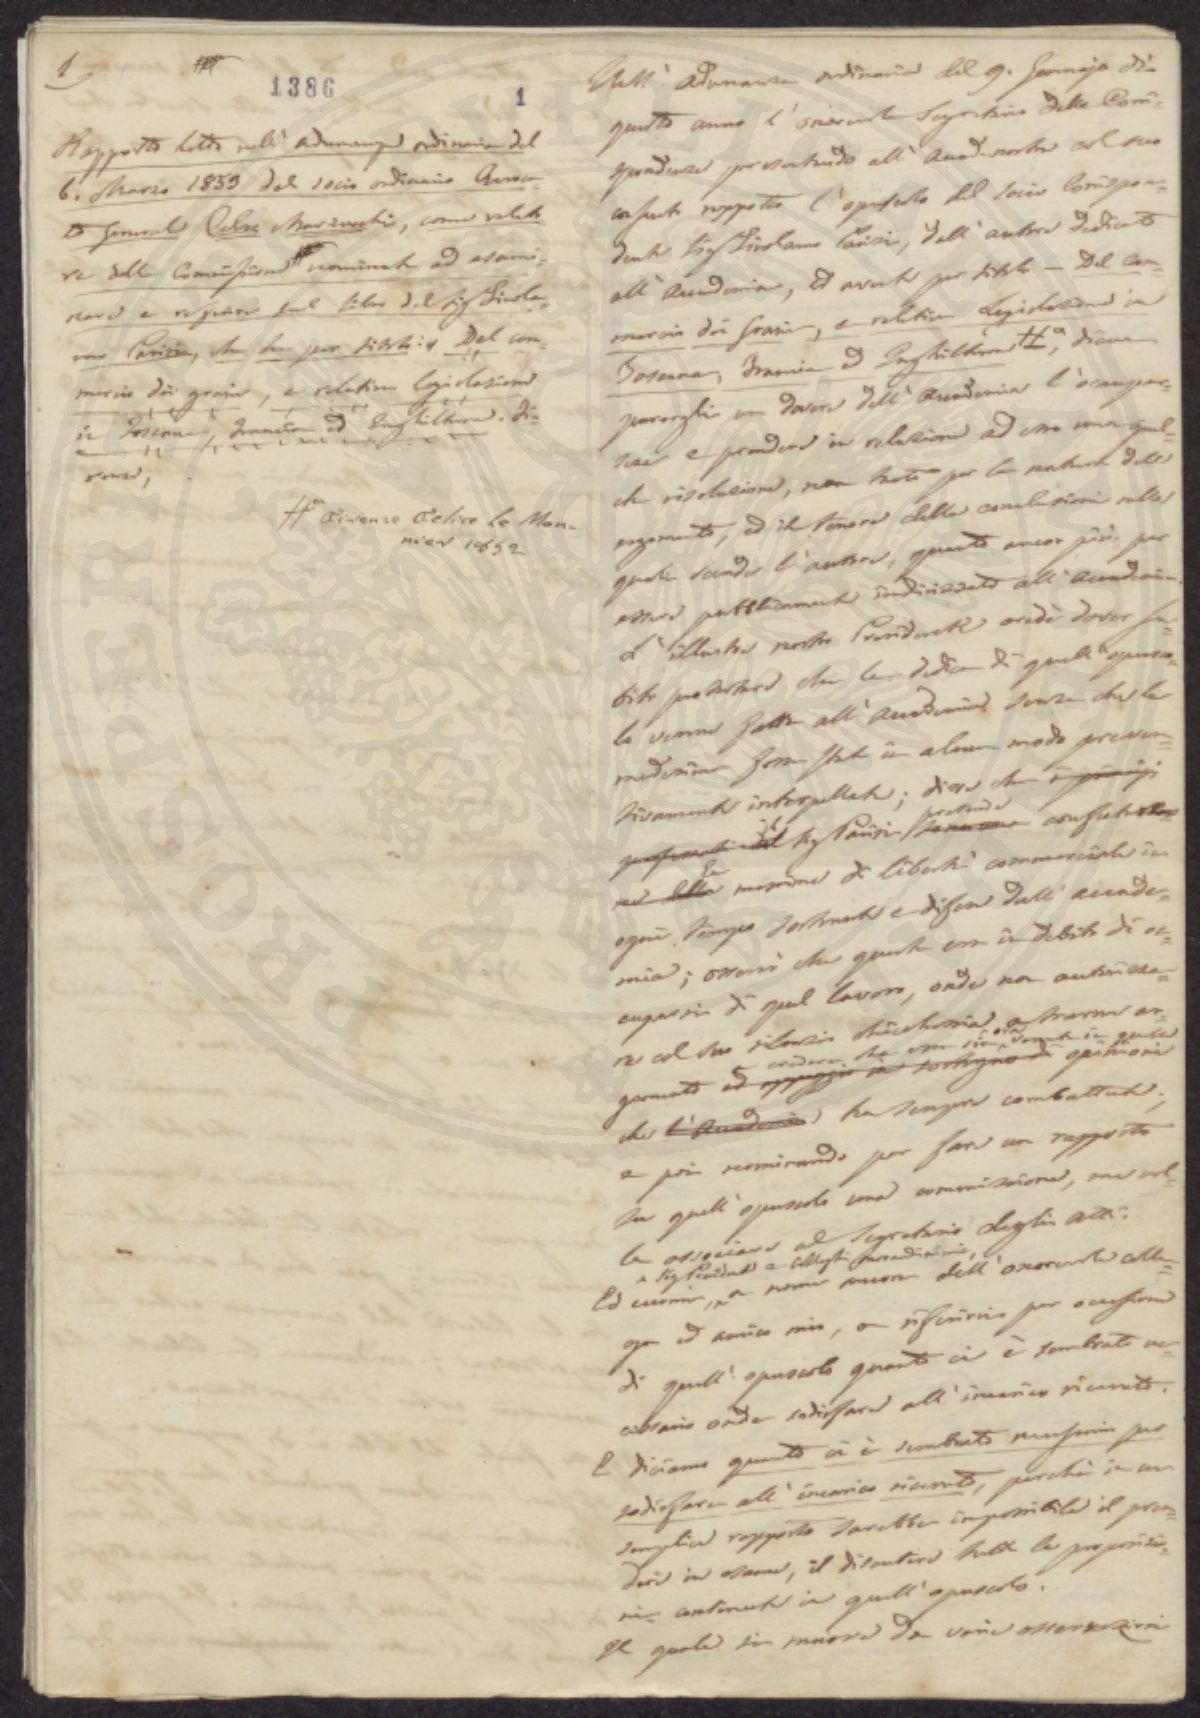 1
1386
1
Rapporto letto nell' adunanza ordinaria del
6. Marzo 1853 dal socio ordinario Avvoca-
to Generale Celso Marzucchi, come relato-
re della Commissione nominata ad esami-
nare e referire sul libro del Sig Girola-
mo Parisi, che ha per titolo: Del com-
mercio dei grani, e relativa legislazione
in Toscana, Francia ed Inghilterra. Fi-
renze,
Firenze Felice Le Mon-
nier 1852
Nell' Adunanza ordinaria del 9. Gennajo di
questo anno l' onorevole Segretario delle Corri-
spondenze presentando all' Accad. nostra col suo
consueto rapporto l' opuscolo del socio Corrispon-
dente Sig Girolamo Parisi, dall' autore dedicato
all' Accademia, ed avente per titolo — Del Com-
mercio dei Grani, e relativa Legislazione in
Toscana, Francia ed Inghilterra, diceva
parergli un dovere dell' Accademia l' occupar-
sene e prendere in relazione ad esso una qual-
che risoluzione, non tanto per la natura dell'
argomento, ed il tenore delle conclusioni nelle
quali scende l' autore, quanto ancor più per
essere pubblicamente indirizzato all' Accademia.
L' illustre nostro Presidente credè dover su-
bito protestare che la dedica di quell' opusco-
lo venne fatta all' Accademia senza che la
medesima fosse stata in alcun modo preven-
tivamente interpellata; disse che i principj
professati dal il Sig Parisi pretende confutare
la massima di libertà commerciale in
ogni tempo sostenuta e difesa dall' accade-
mia; osservò che questa era in debito di oc-
cuparsi di quel lavoro, onde non autorizza-
re col suo silenzio chicchessia a trarne ar-
gomento a credere che essa sia ora venuta in quelle
ed appoggio in sostegno di opinioni
che l' Accademia ha sempre combattute;
e poi nominando per fare un rapporto
su quell' opuscolo una commissione, me vol-
le associare al Segretario degli Atti.
Sig Presidente e Colleghi
Ed eccomi, a nome ancora dell' onorevole colle-
ga ed amico mio, a riferirvi per occasione
di quell' opuscolo quanto ci è sembrato ne-
cessario onde sodisfare all' incarico ricevuto.
E diciamo quanto ci è sembrato necessario per
sodisfare all' incarico ricevuto, perchè in un
semplice rapporto sarebbe impossibile il pren-
dere in esame, il discutere tutte le proposizio-
ni contenute in quell' opuscolo.
Il quale si muove da varie osservazioni